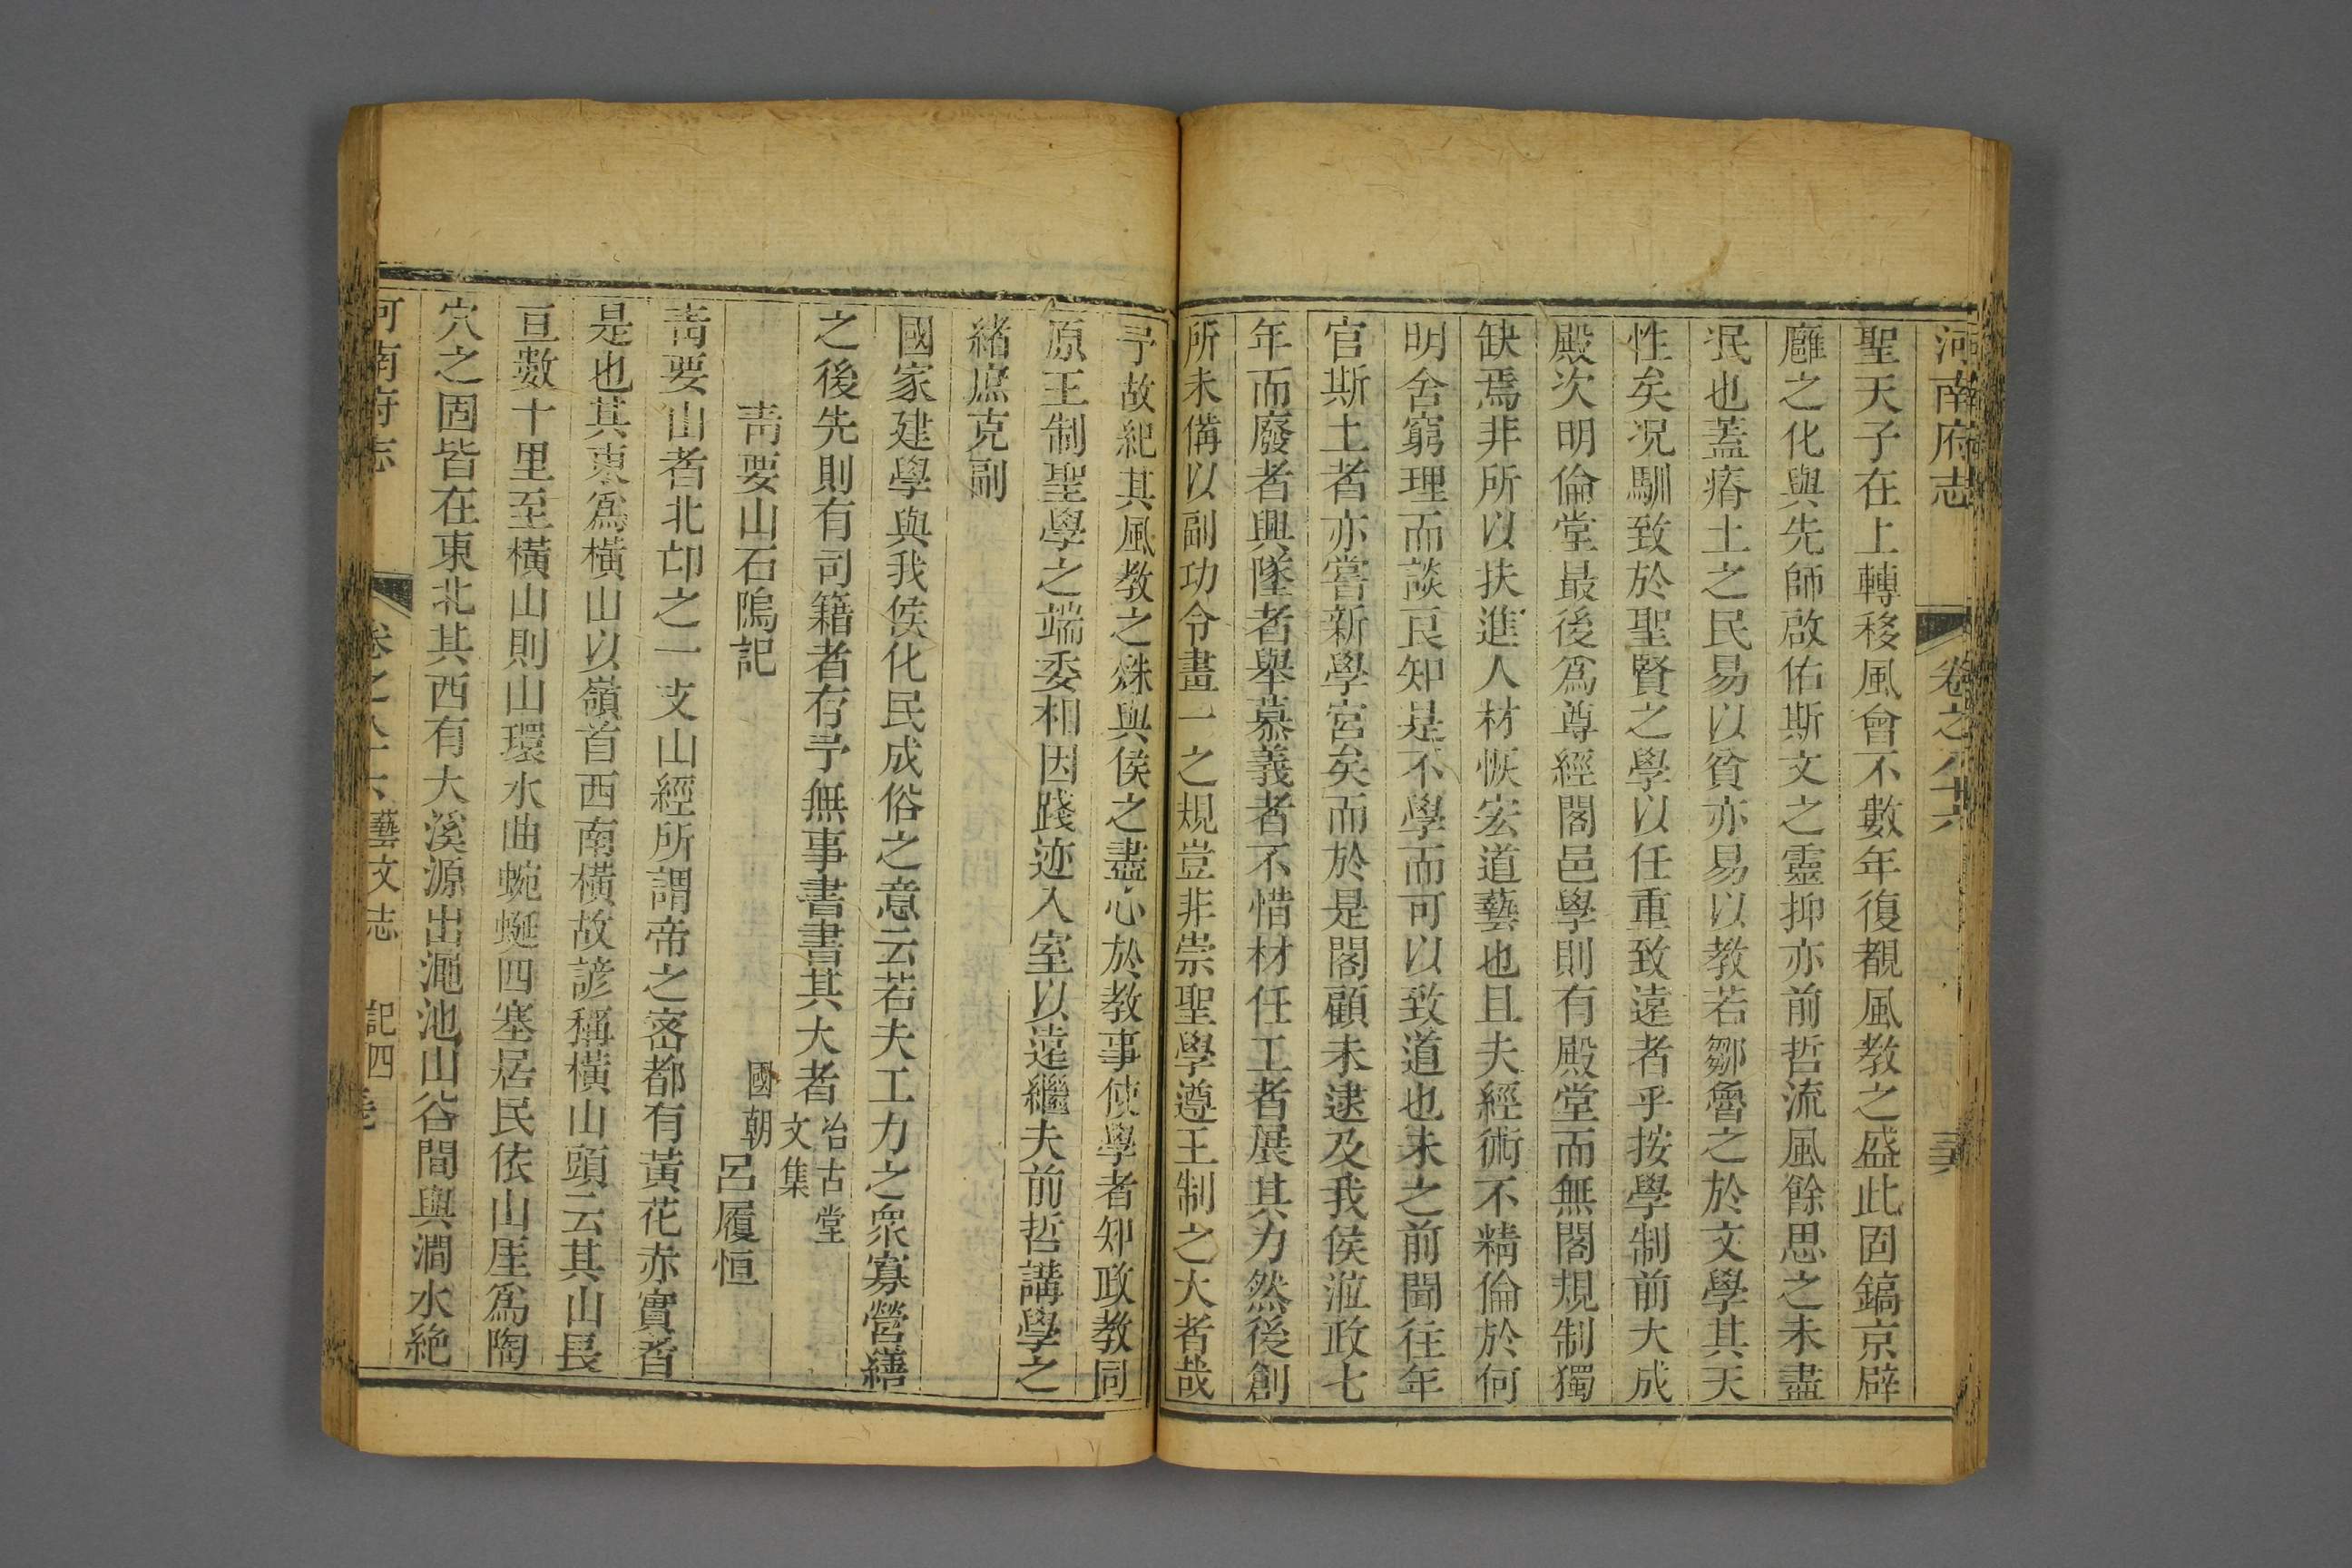 河南府志 卷之八十六 三六
聖天子在上轉移風會不數年復覩風教之盛此固鎬京辟
廱之化與先師啟佑斯文之靈抑亦前哲流風餘思之未盡
泯也蓋瘠土之民易以貧亦易以教若鄒魯之於文學其天
性矣况馴致於聖賢之學以任重致遠者乎按學制前大成
殿次明倫堂最後爲尊經閣邑學則有殿堂而無閣規制獨
缺焉非所以扶進人材恢宏道藝也且夫經術不精倫於何
明舍窮理而談良知是不學而可以致道也未之前聞往年
官斯土者亦嘗新學宮矣而於是閣顧未逮及我侯涖政七
年而廢者興墜者舉慕義者不惜材任工者展其力然後創
所未備以副功令畫一之規豈非崇聖學遵王制之大者哉
予故紀其風教之殊與侯之盡心於教事使學者知政教同
原王制聖學之端委相因踐迹入室以遠繼夫前哲講學之
緒庶克副
國家建學與我侯化民成俗之意云若夫工力之衆寡營繕
之後先則有司籍者存予無事書書其大者 冶古堂文集
青要山石隖記 國朝 呂履恒
青要山者北邙之一支山經所謂帝之密都有黃花赤實者
是也其東爲橫山以嶺首西南橫故諺稱橫山頭云其山長
亘數十里至橫山則山環水曲蜿蜒四塞居民依山厓爲陶
穴之固皆在東北其西有大溪源出澠池山谷間與澗水絶
河南府志 卷之八十六 藝文志 記四